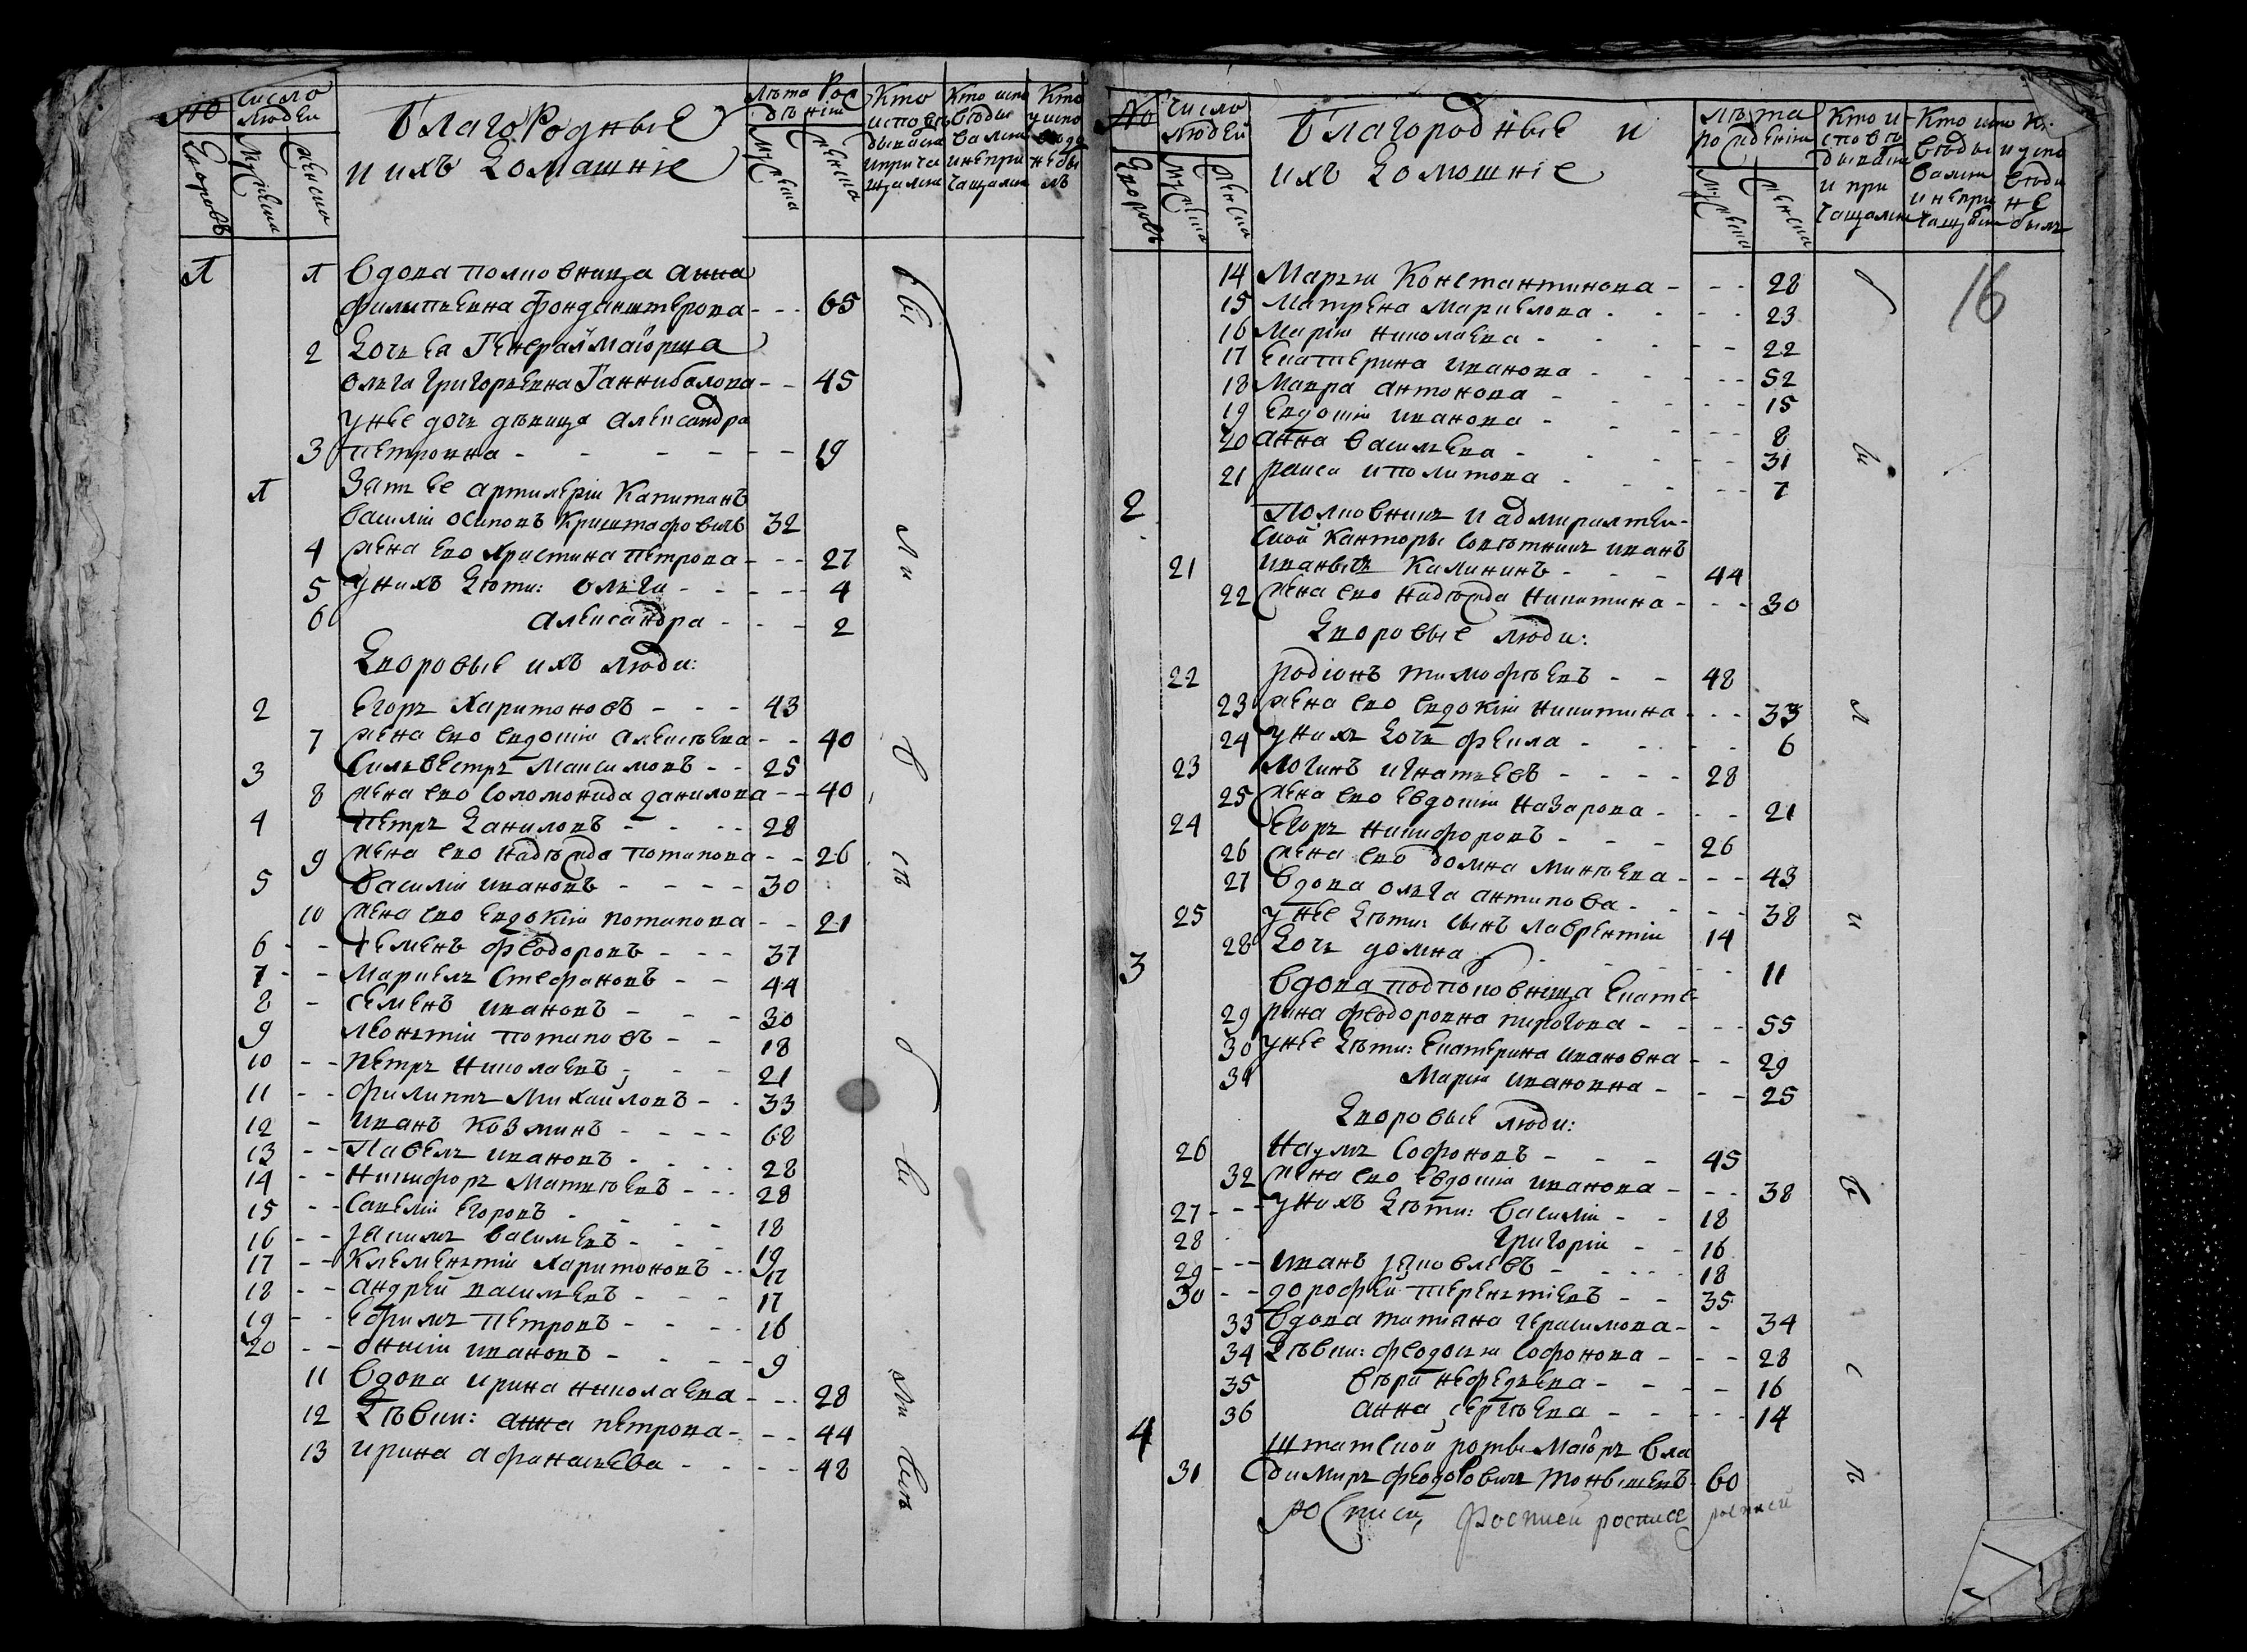 № Число людей Благородные и ихъ Домашніе Лѣта Рожденія Кто исповѣдывался и причащался Кто исповѣдывался и не причащался Кто у исповѣди не былъ
Дворовъ Мужеска Женска Мужеска Женска
1 1 Вдова полковница Анна
Филипьевна Фонданштерова - - - 65
2 Дочь ея Генерал Маіорша
Ольга Григорьевна Ганнибалова - - 45
У нее дочь девица Александра
3 Петровна - - - - - - 19
1 Зять ее артилеріи Капитанъ
Василій Осиповъ Криштафовичъ 32
4 жена его Христина Петрова - - - 27
5 У нихъ Дѣти: Ольга - - - - - 4
6 Александра - - - 2
Дворовые ихъ люди:
2 Егоръ Харитоновъ - - - 43
7 жена его Евдокія Алексѣева - - 40
3 Сильвестръ Максимовъ - - 25
8 жена его Соломонида Данилова - - 40
4 Петръ Даниловъ - - - - 28
9 жена его Надѣжда Потапова - - 26
5 Василій Ивановъ - - - - 30
10 жена его Евдокія Потапова - - 21
6 - - Семенъ Феодоровъ - - - 37
7 - - Маркелъ Стефановъ - - 44
8 - Семенъ Ивановъ - - - 30
9 Леонтій Потаповъ - - 18
10 - - Петръ Николаевъ - - - 21
11 - - Филиппъ Михайловъ - - 33
12 - Иванъ Козминъ - - - - 68
13 - - Павелъ Ивановъ - - - - 28
14 - - Никифоръ Матвѣевъ - - - 28
15 - - Савелій Егоровъ - - - - 18
16 - - Якимъ Васильевъ - - - 19
17 - - Клементій Харитоновъ - - 17
18 - - Андрей Васильевъ - - - 17
19 - - Ефимъ Петровъ - - - - 16
20 - - Онисій Ивановъ - - - - - 9
11 Вдова Ирина Николаева - - - 28
12 Дѣвки: Анна Петрова - - - 44
13 Ирина Афанасьева - - - - 48
№ Число людей Благородные и ихъ Домошніе Лѣта рожденія Кто исповѣдывался и причащался
Дворовъ Мужеска Женска Мужеска Женска
16
14 Марья Константинова - - - 28
15 Матрена Маркелова - - - - 23
16 Марія Николаева - - - - - 22
17 Екатерина Иванова - - - - - 52
18 Мавра Антонова - - - - - 15
19 Евдокія Иванова - - - - - 8
20 Анна Васильева - - - - - 31
21 Раиса Иполитова - - - - 7
2 Полковникъ и адмиралтей-
ской Канторы советникъ Иванъ
21 Иванычъ Калининъ - - - 44
22 жена его Надѣжда Никитина - - - 30
Дворовые люди:
22 Родіонъ Тимофѣевъ - - 48
23 жена его Евдокія Никитина - - - 33
24 У нихъ Дочь Фекла - - - - 6
23 Логинъ Игнатьевъ - - - - 28
25 жена его Евдокія Назарова - - - 21
24 Егоръ Никифоровъ - - - 26
26 жена его Домна Минѣева - - - 43
27 Вдова Ольга Антипова - - - - 38
25 У нее Дѣти: сынъ Лаврентій 14
28 Дочь Домна - - - - - 11
3 Вдова подполковница Екате-
29 рина Феодоровна Пирогова - - - - 55
30 У нее Дѣти: Екатерина Ивановна - - 29
31 Марія Ивановна - - - 25
Дворовые люди:
26 Наумъ Софоновъ - - - 45
32 жена его Евдокія Иванова - - - 38
27 - - - У нихъ Дѣти: Василій - - 18
28 Григорій - - 16
29 - - - Иванъ Яковлевъ - - - - 18
30 - - Дорофей Терентіевъ - - 35
33 Вдова Татіана Герасимова - - 34
34 Дѣвки: Феодосья Софонова - - - 28
35 Вѣра Нефедьева - - - - 16
36 Анна Сергѣева - - - - - 14
4 Штатской роты Маіоръ Вла
31 димиръ Феодоровичъ 60
росписи роспись